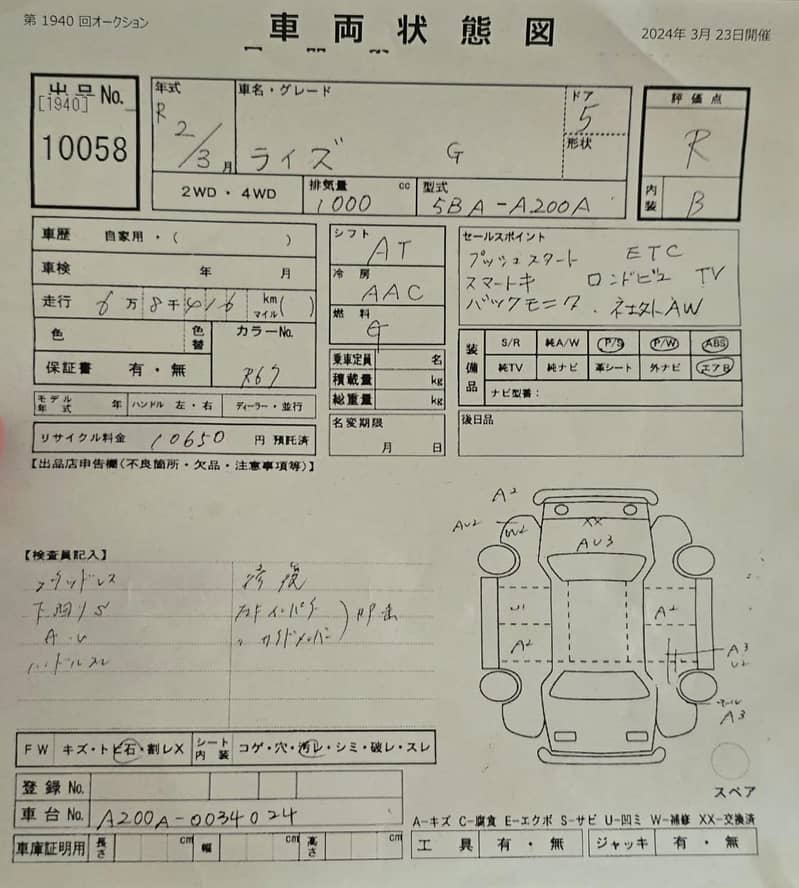 第 1940 回オークション
車両状態図
2024年 3月 23日開催
出品 No.
[1940]
10058
年式
R 2/3 月
車名・グレード
ライズ G
ドア
5
形状
評価点
R
内装
B
2WD・4WD
排気量
1000 cc
型式
5BA-A200A
車歴 自家用・( )
車検 年 月
走行 6万8千416 km マイル( )
色
色替
カラーNo.
R67
保証書 有・無
モデル年式 年
ハンドル 左・右
ディーラー・並行
リサイクル料金 10650 円 預託済
シフト
AT
冷房
AAC
燃料
G
乗車定員 名
積載量 kg
総重量 kg
名変期限
月 日
セールスポイント
プッシュスタート ETC
スマートキ TV
バックモニタ AW
装備品
S/R 純A/W P/S P/W ABS
純TV 純ナビ 革シート 外ナビ エアB
ナビ型番:
後日品
【出品店申告欄(不良箇所・欠品・注意事項等)】
【検査員記入】
修復
下廻りS
A・U
ハンドルスレ
A2
AU2
W2
XX
AU3
U1
A2
A2
A3
U2
A3
スペア
FW キズ・トビ石・割レX
シート内装 コゲ・穴・汚レ・シミ・破レ・スレ
登録 No.
車台 No. A200A-0034024
A-キズ C-腐食 E-エクボ S-サビ U-凹ミ W-補修 XX-交換済
車庫証明用 長さ cm 幅 cm 高さ cm
工具 有・無 ジャッキ 有・無